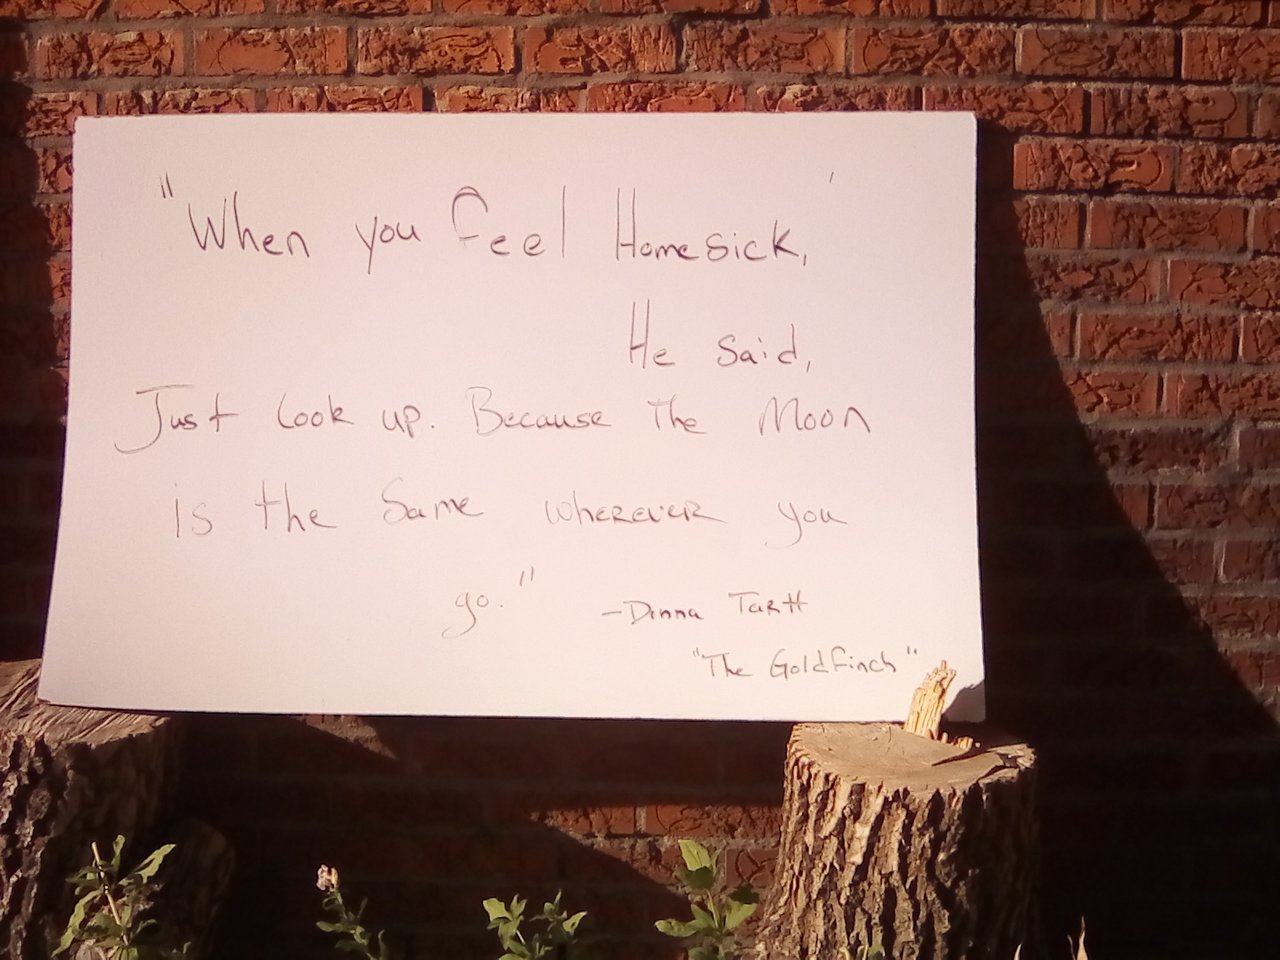 "When you feel Homesick,
He said,
Just look up. Because the Moon
is the same wherever you
go."
-Donna Tartt
"The Goldfinch"